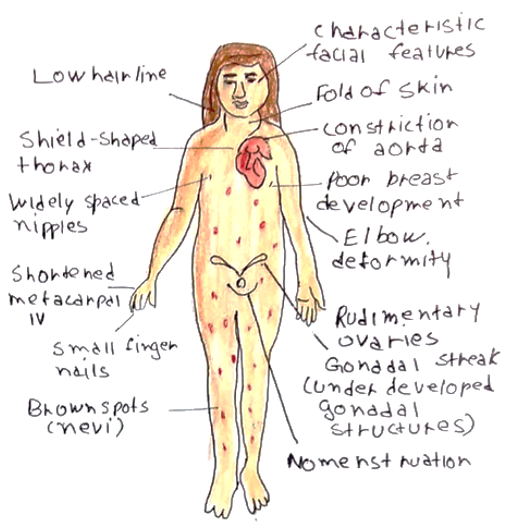 Characteristic
facial features
Low hairline
Fold of skin
Constriction
of aorta
Shield-shaped
thorax
Poor breast
development
Widely spaced
nipples
Elbow.
deformity
Shortened
metacarpal
IV
Rudimentary
ovaries
Small finger
nails
Gonadal streak
(under developed
gonadal
structures)
Brown spots
(nevi)
No menstruation